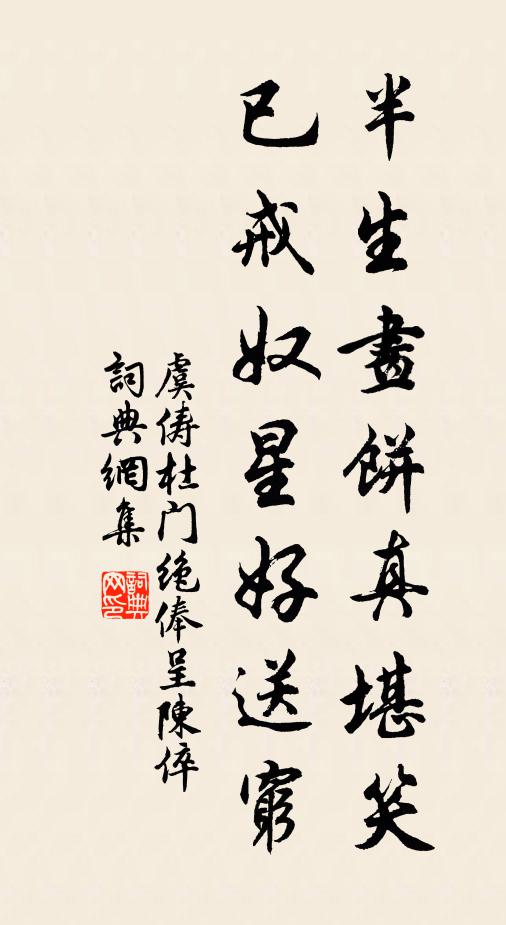 半生畫餅真堪笑
已戒奴星好送窮
虞儔杜门绝俸呈陳倅
詞典網集
詞典
网印